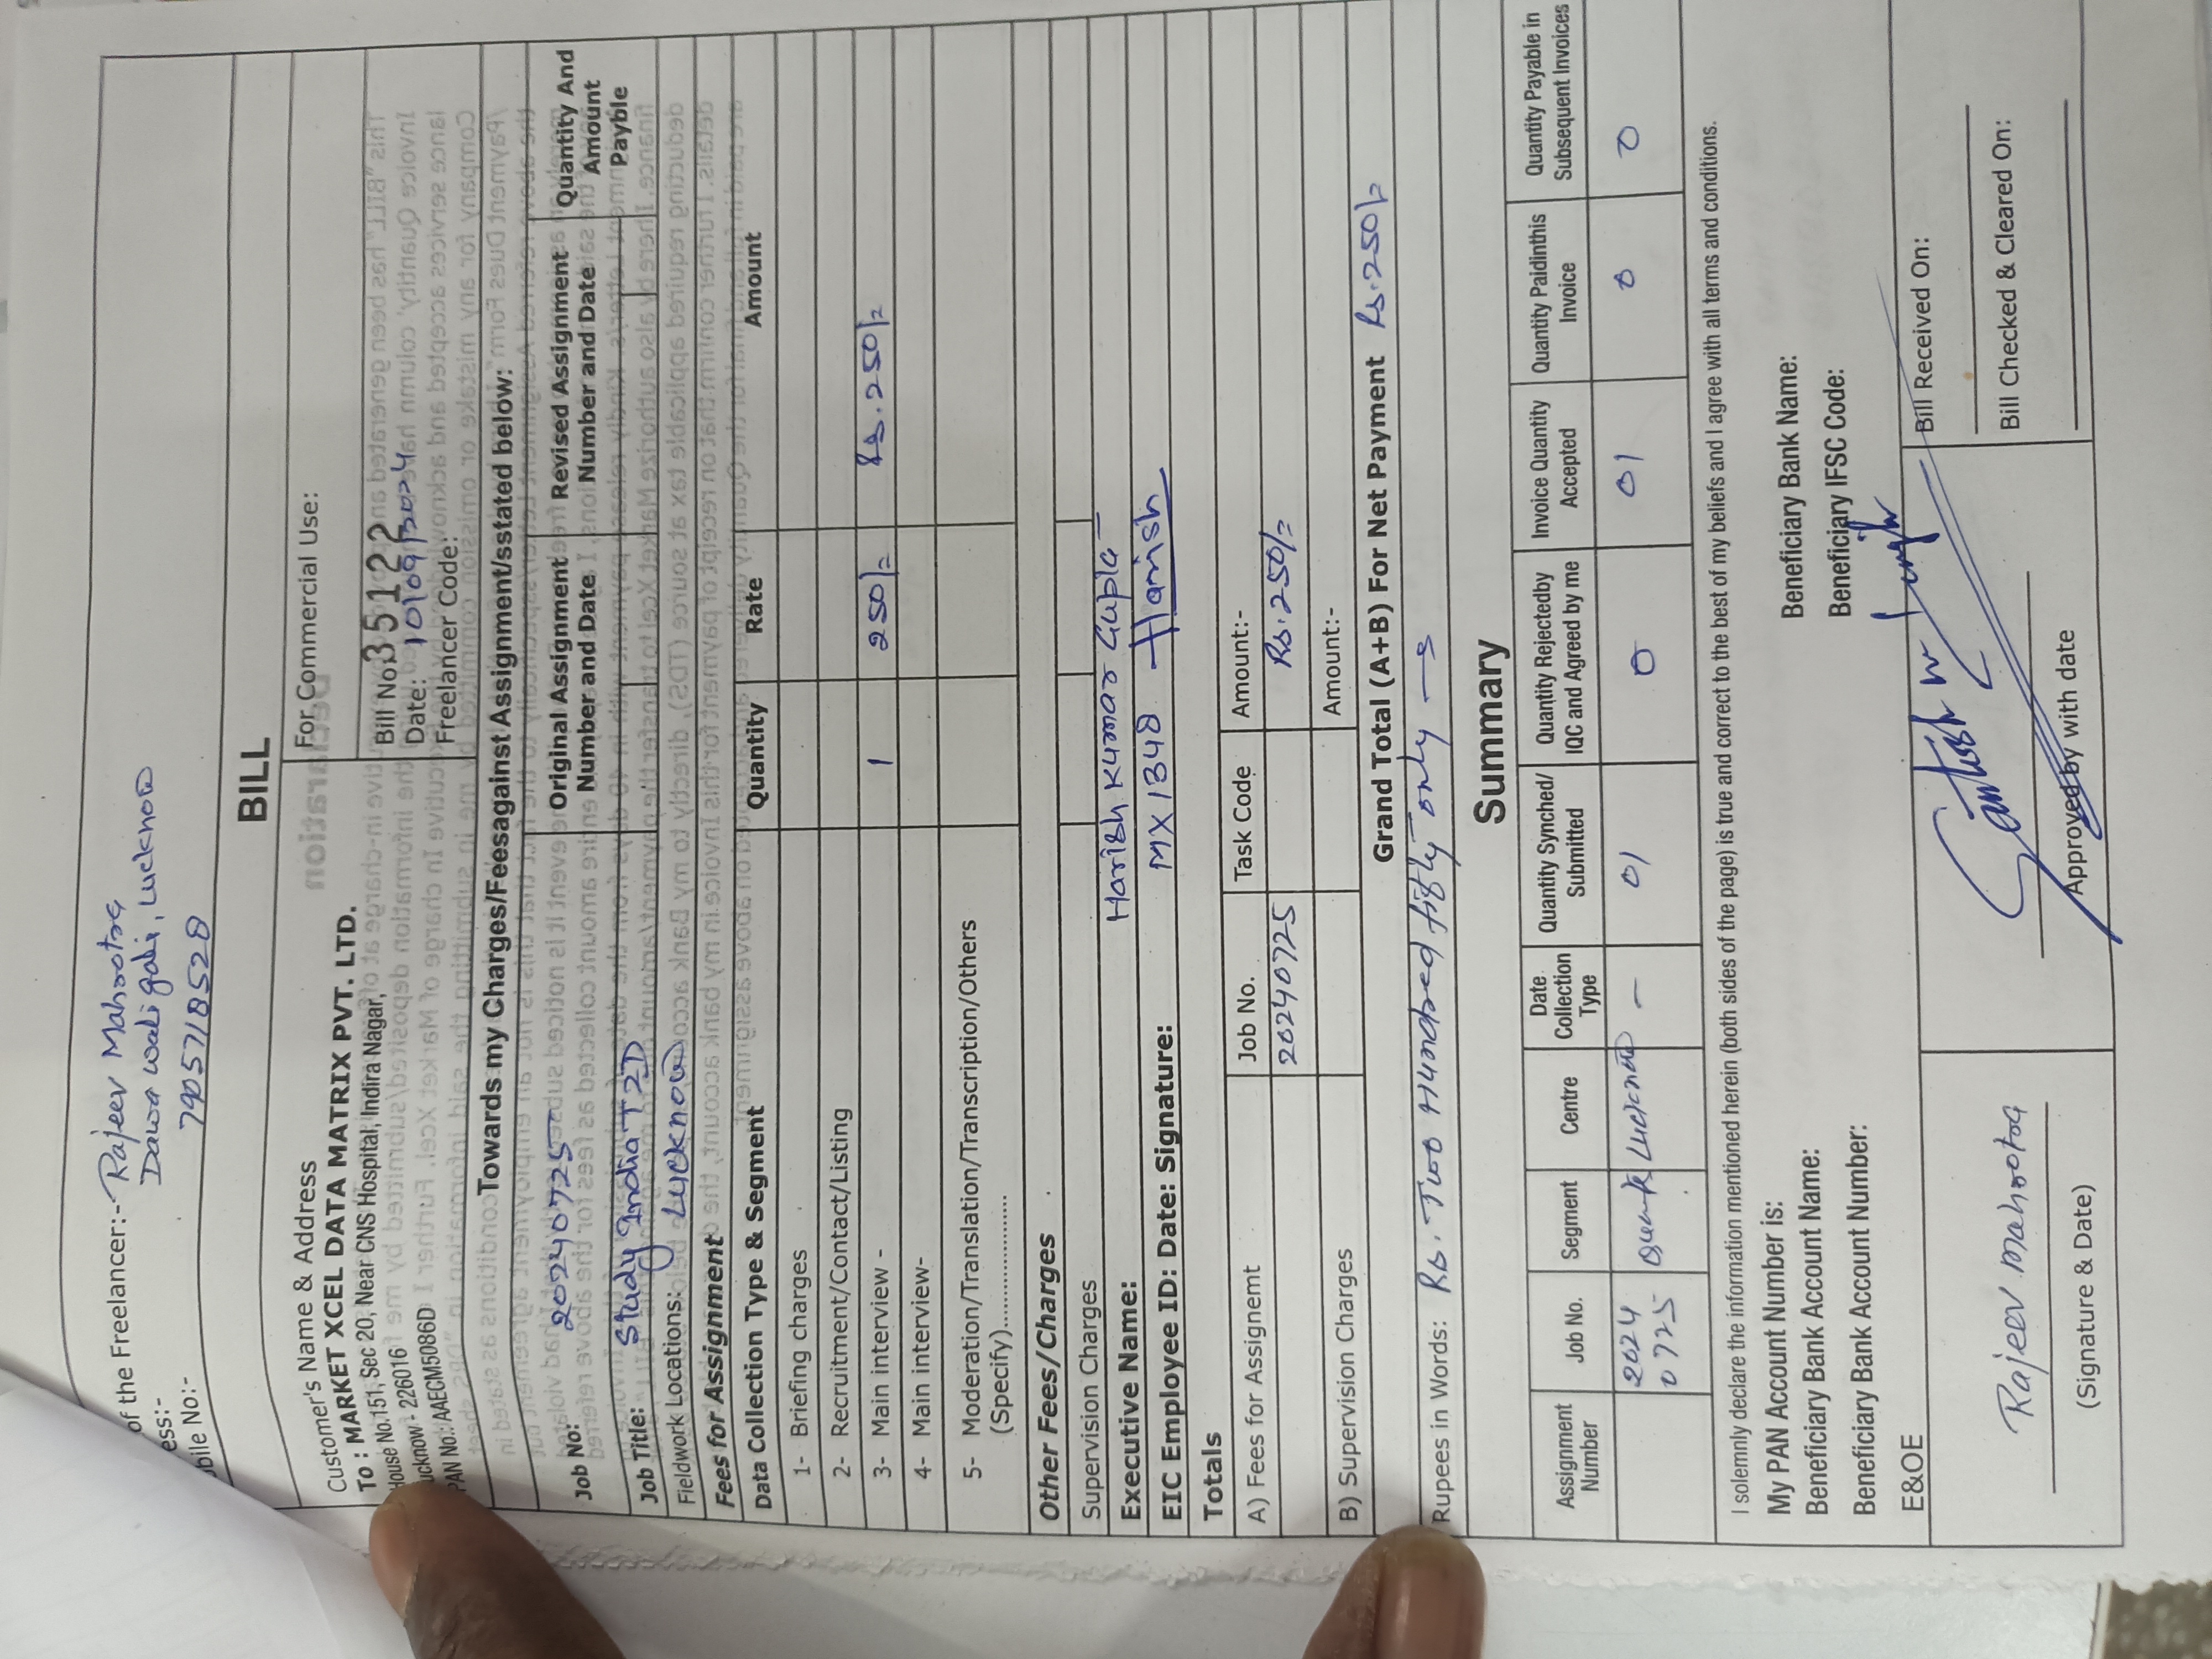 of the Freelancer:- Rajeev Mahrotra
ess:- Dawa wali gali, Lucknow
bile No:- 7905718528
BILL
Customer's Name & Address
To : MARKET XCEL DATA MATRIX PVT. LTD.
House No.151, Sec 20, Near CNS Hospital, Indira Nagar,
ucknow - 226016
PAN No.: AAECM5086D
For Commercial Use:
Bill No. 35122
Date: 10/09/2024
Freelancer Code:
Towards my Charges/Feesagainst Assignment/sstated below:
Job No: 20240725
Original Assignment Number and Date
Revised Assignment Number and Date
Quantity And Amount Payble
Job Title: Study India T2D
Fieldwork Locations: Lucknow
Fees for Assignment
Data Collection Type & Segment Quantity Rate Amount
1- Briefing charges
2- Recruitment/Contact/Listing
3- Main interview - 1 250/= Rs.250/=
4- Main interview-
5- Moderation/Translation/Transcription/Others
(Specify)........................
Other Fees/Charges
Supervision Charges
Executive Name: Harish Kumar Gupta
EIC Employee ID: Date: Signature: MX1348 Harish
Totals
A) Fees for Assignemt Job No. Task Code Amount:-
20240725 Rs.250/=
B) Supervision Charges Amount:-
Grand Total (A+B) For Net Payment Rs.250/=
Rupees in Words: Rs. Two Hundred fifty only
Summary
Assignment Number
Job No.
Segment
Centre
Date Collection Type
Quantity Synched/ Submitted
Quantity Rejectedby IQC and Agreed by me
Invoice Quantity Accepted
Quantity Paidinthis Invoice
Quantity Payable in Subsequent Invoices
2024 0725 Lucknow - 01 0 01 0 0
I solemnly declare the information mentioned herein (both sides of the page) is true and correct to the best of my beliefs and I agree with all terms and conditions.
My PAN Account Number is:
Beneficiary Bank Account Name: Beneficiary Bank Name:
Beneficiary Bank Account Number: Beneficiary IFSC Code:
E&OE
Rajeev mahrotra
(Signature & Date)
Approved by with date
Bill Received On:
Bill Checked & Cleared On: